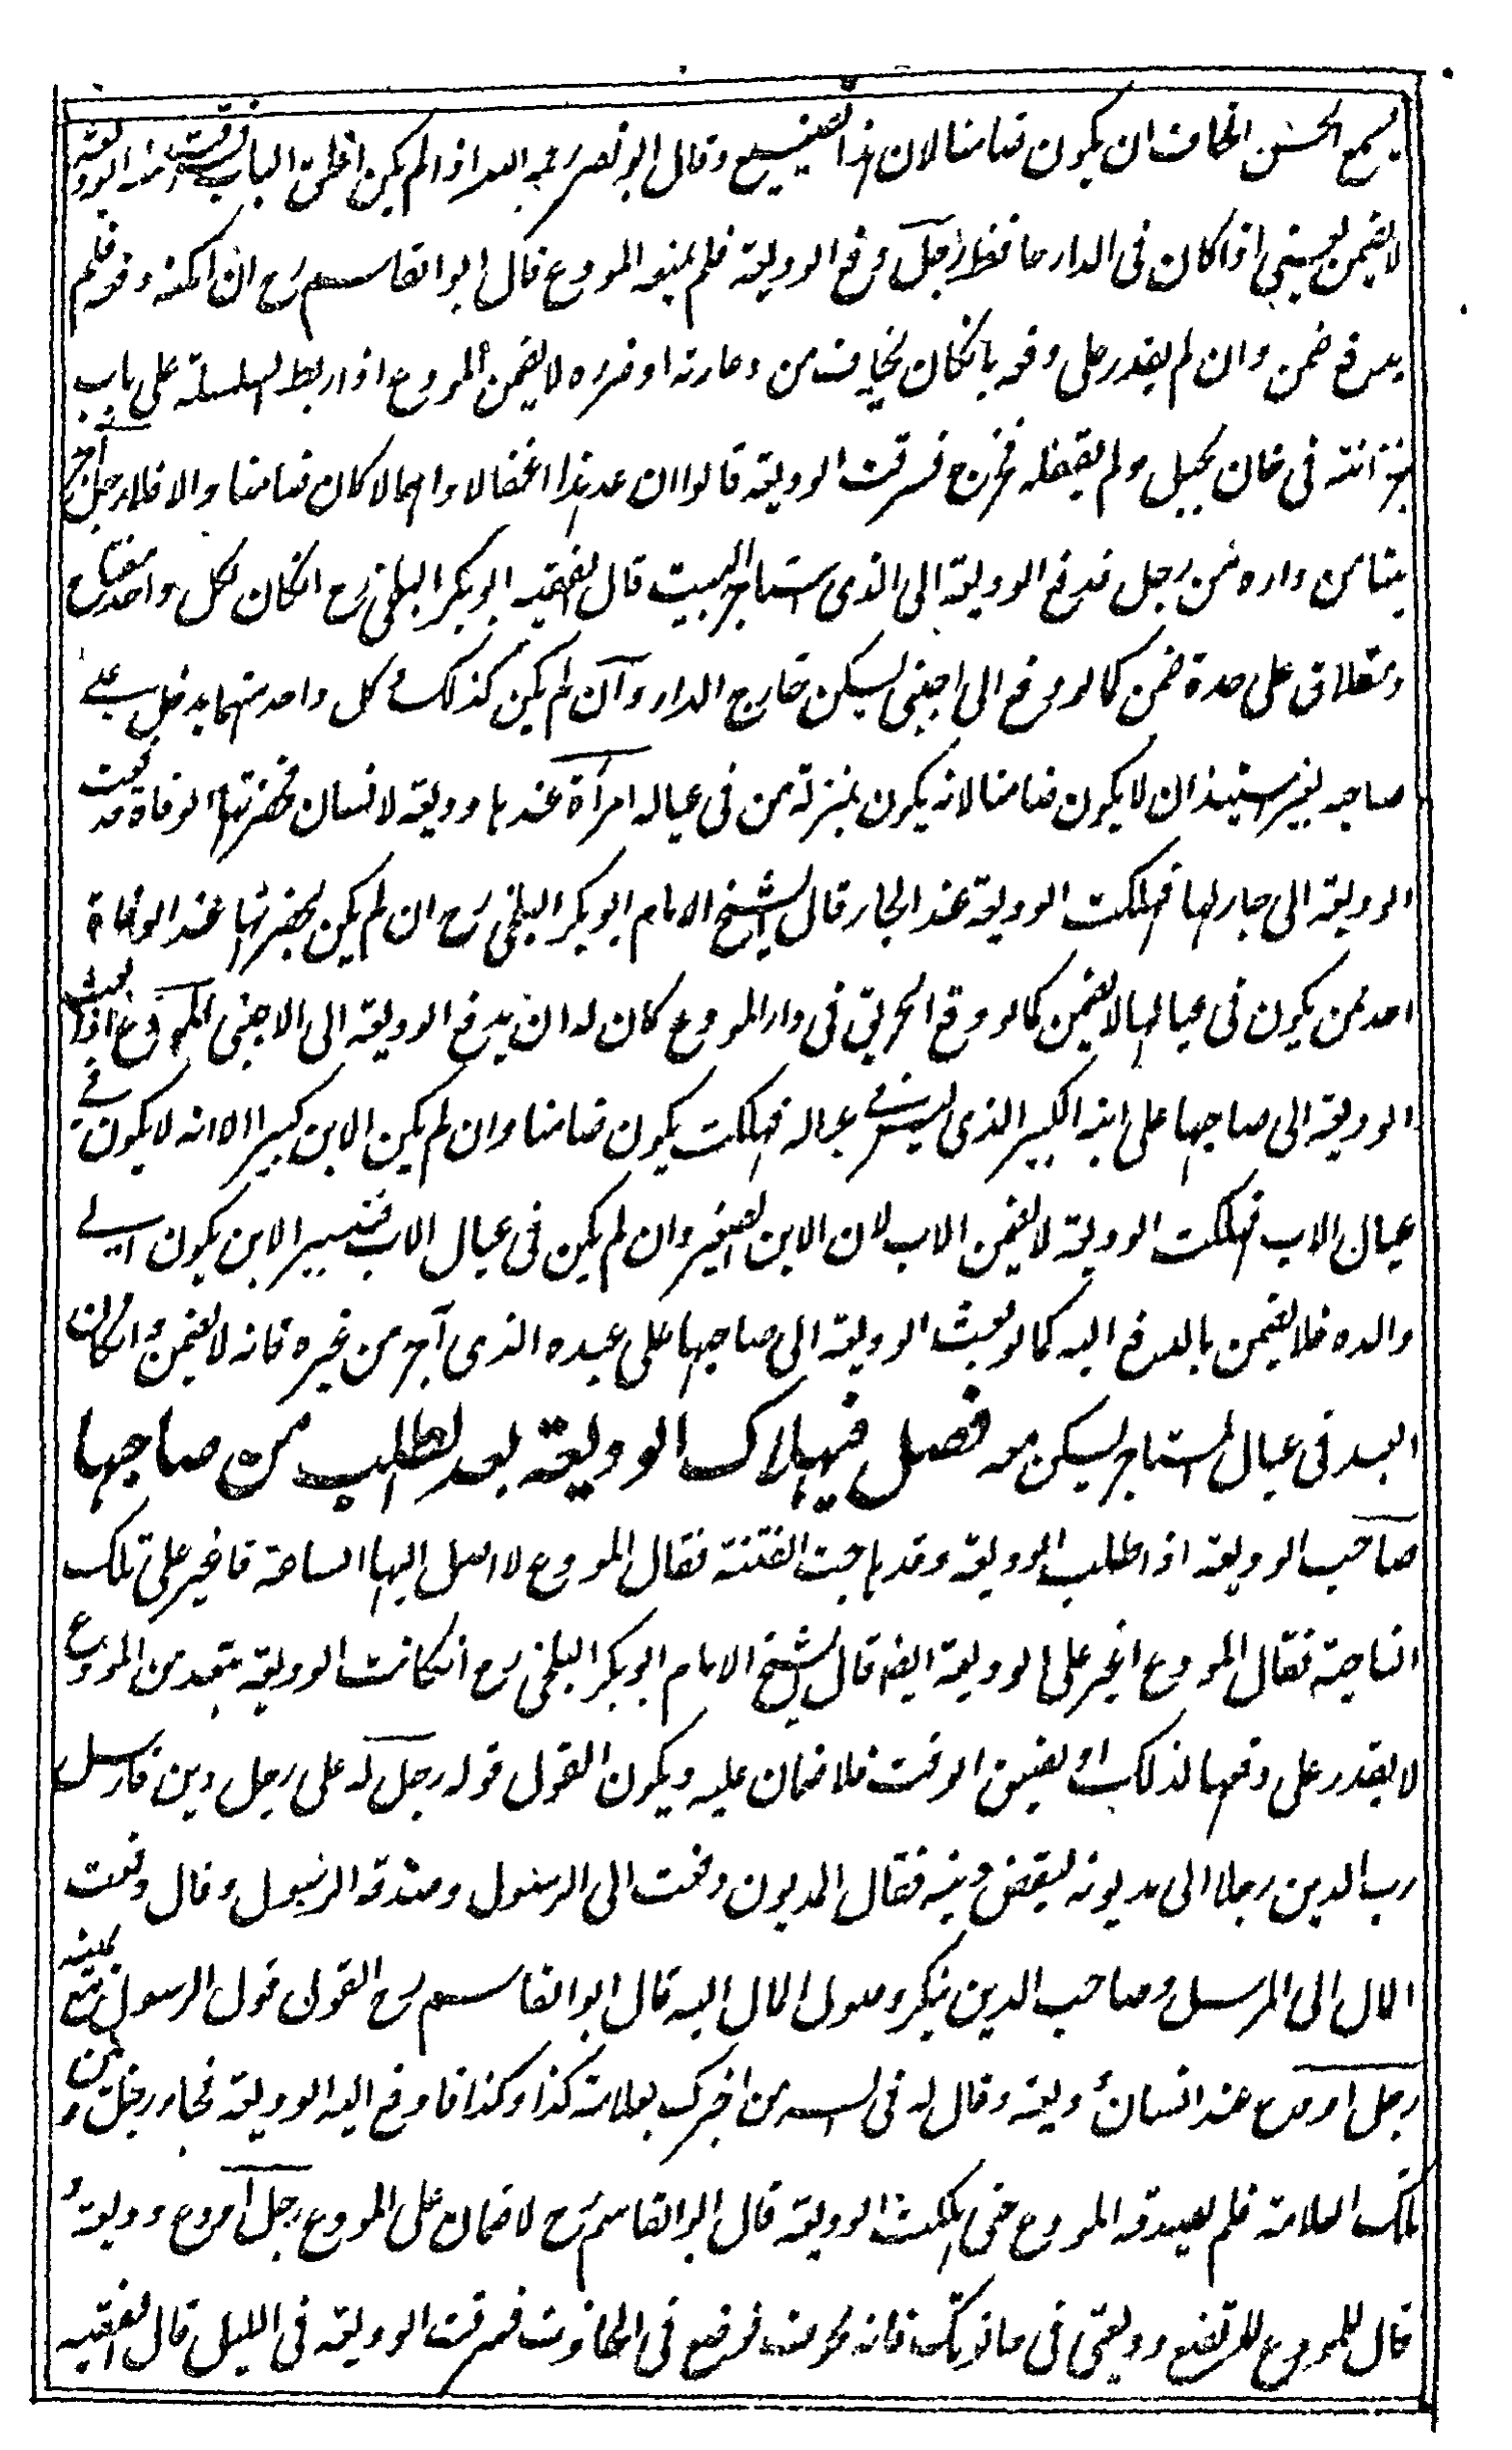 يسمع الحسن اخاف ان يكون ضامنا لان هذا تضييع وقال ابو نصر رحمه الله اذا لم يكن اغلق الباب فسرقت منه الوديعة
لا يضمن يعني اذا كان في الدار حافظ رجل دفع الوديعة فلم يمنعه المودع قال ابو القاسم رح ان امكنه دفعه فلم
يدفع ضمن وان لم يقدر على دفعه بان كان يخاف من دعارته او ضربه لا يضمن المودع اذا ربط السلسلة على باب
خزانته في خان بحبل ولم يقفله فخرج فسرقت الوديعة قالوا ان عد هذا اغفالا واهمالا كان ضامنا والا فلا رجل آجر
بيتا من داره من رجل فدفع الوديعة الى الذي استاجر البيت قال الفقيه ابو بكر البلخي رح انكان لكل واحد مفتاح
ومغلاق على حدة ضمن كما لو دفع الى اجنبي يسكن خارج الدار وان لم يكن كذلك وكل واحد منهما يدخل على
صاحبه بغير استيذان لا يكون ضامنا لانه يكون بمنزلة من في عياله امرأة عندها وديعة لانسان فحضرتها الوفاة فدفعت
الوديعة الى جار لها فهلكت الوديعة عند الجار قال الشيخ الامام ابو بكر البلخي رح ان لم يكن بحضرتها عند الوفاة
احد ممن يكون في عيالها لا يضمن كما لو وقع الحريق في دار المودع كان له ان يدفع الوديعة الى الاجنبي المودع اذا بعث
الوديعة الى صاحبها على ابنه الكبير الذي ليس في عياله فهلكت يكون ضامنا وان لم يكن الابن كبيرا الا انه لا يكون في
عيال الاب فهلكت الوديعة لا يضمن الاب لان الابن الصغير وان لم يكن في عيال الاب فتدبير الابن يكون الى
والده فلا يضمن بالدفع اليه كما لو بعث الوديعة الى صاحبها على عبده الذي آجر من غيره فانه لا يضمن وانكان
العبد في عيال المستاجر يسكن معه فصل في هلاك الوديعة بعد الطلب من صاحبها
صاحب الوديعة اذا طلب الوديعة وقد هاجت الفتنة فقال المودع لا اصل اليها الساعة فاغير على تلك
الناحية فقال المودع اغير على الوديعة ايضا قال الشيخ الامام ابو بكر البلخي رح انكانت الوديعة بعيد من المودع
لا يقدر على دفعها لذلك او لضيق الوقت فلا ضمان عليه ويكون القول قوله رجل له على رجل دين فارسل
رب الدين رجلا الى مديونه ليقبض دينه فقال المديون دفعت الى الرسول وصدقه الرسول وقال دفعت
المال الى المرسل وصاحب الدين ينكر وصول المال اليه قال ابو القاسم رح القول قول الرسول مع يمينه
رجل اودع عند انسان وديعة وقال له في السر من اخبرك بعلامة كذا وكذا فادفع اليه الوديعة فجاء رجل وبين
تلك العلامة فلم يصدقه المودع حتى هلكت الوديعة قال ابو القاسم رح لا ضمان على المودع رجل اودع وديعة
قال للمودع لا تضع وديعتي في حانوتك فانه مخوف فوضع في الحانوت فسرقت الوديعة في الليل قال الفقيه